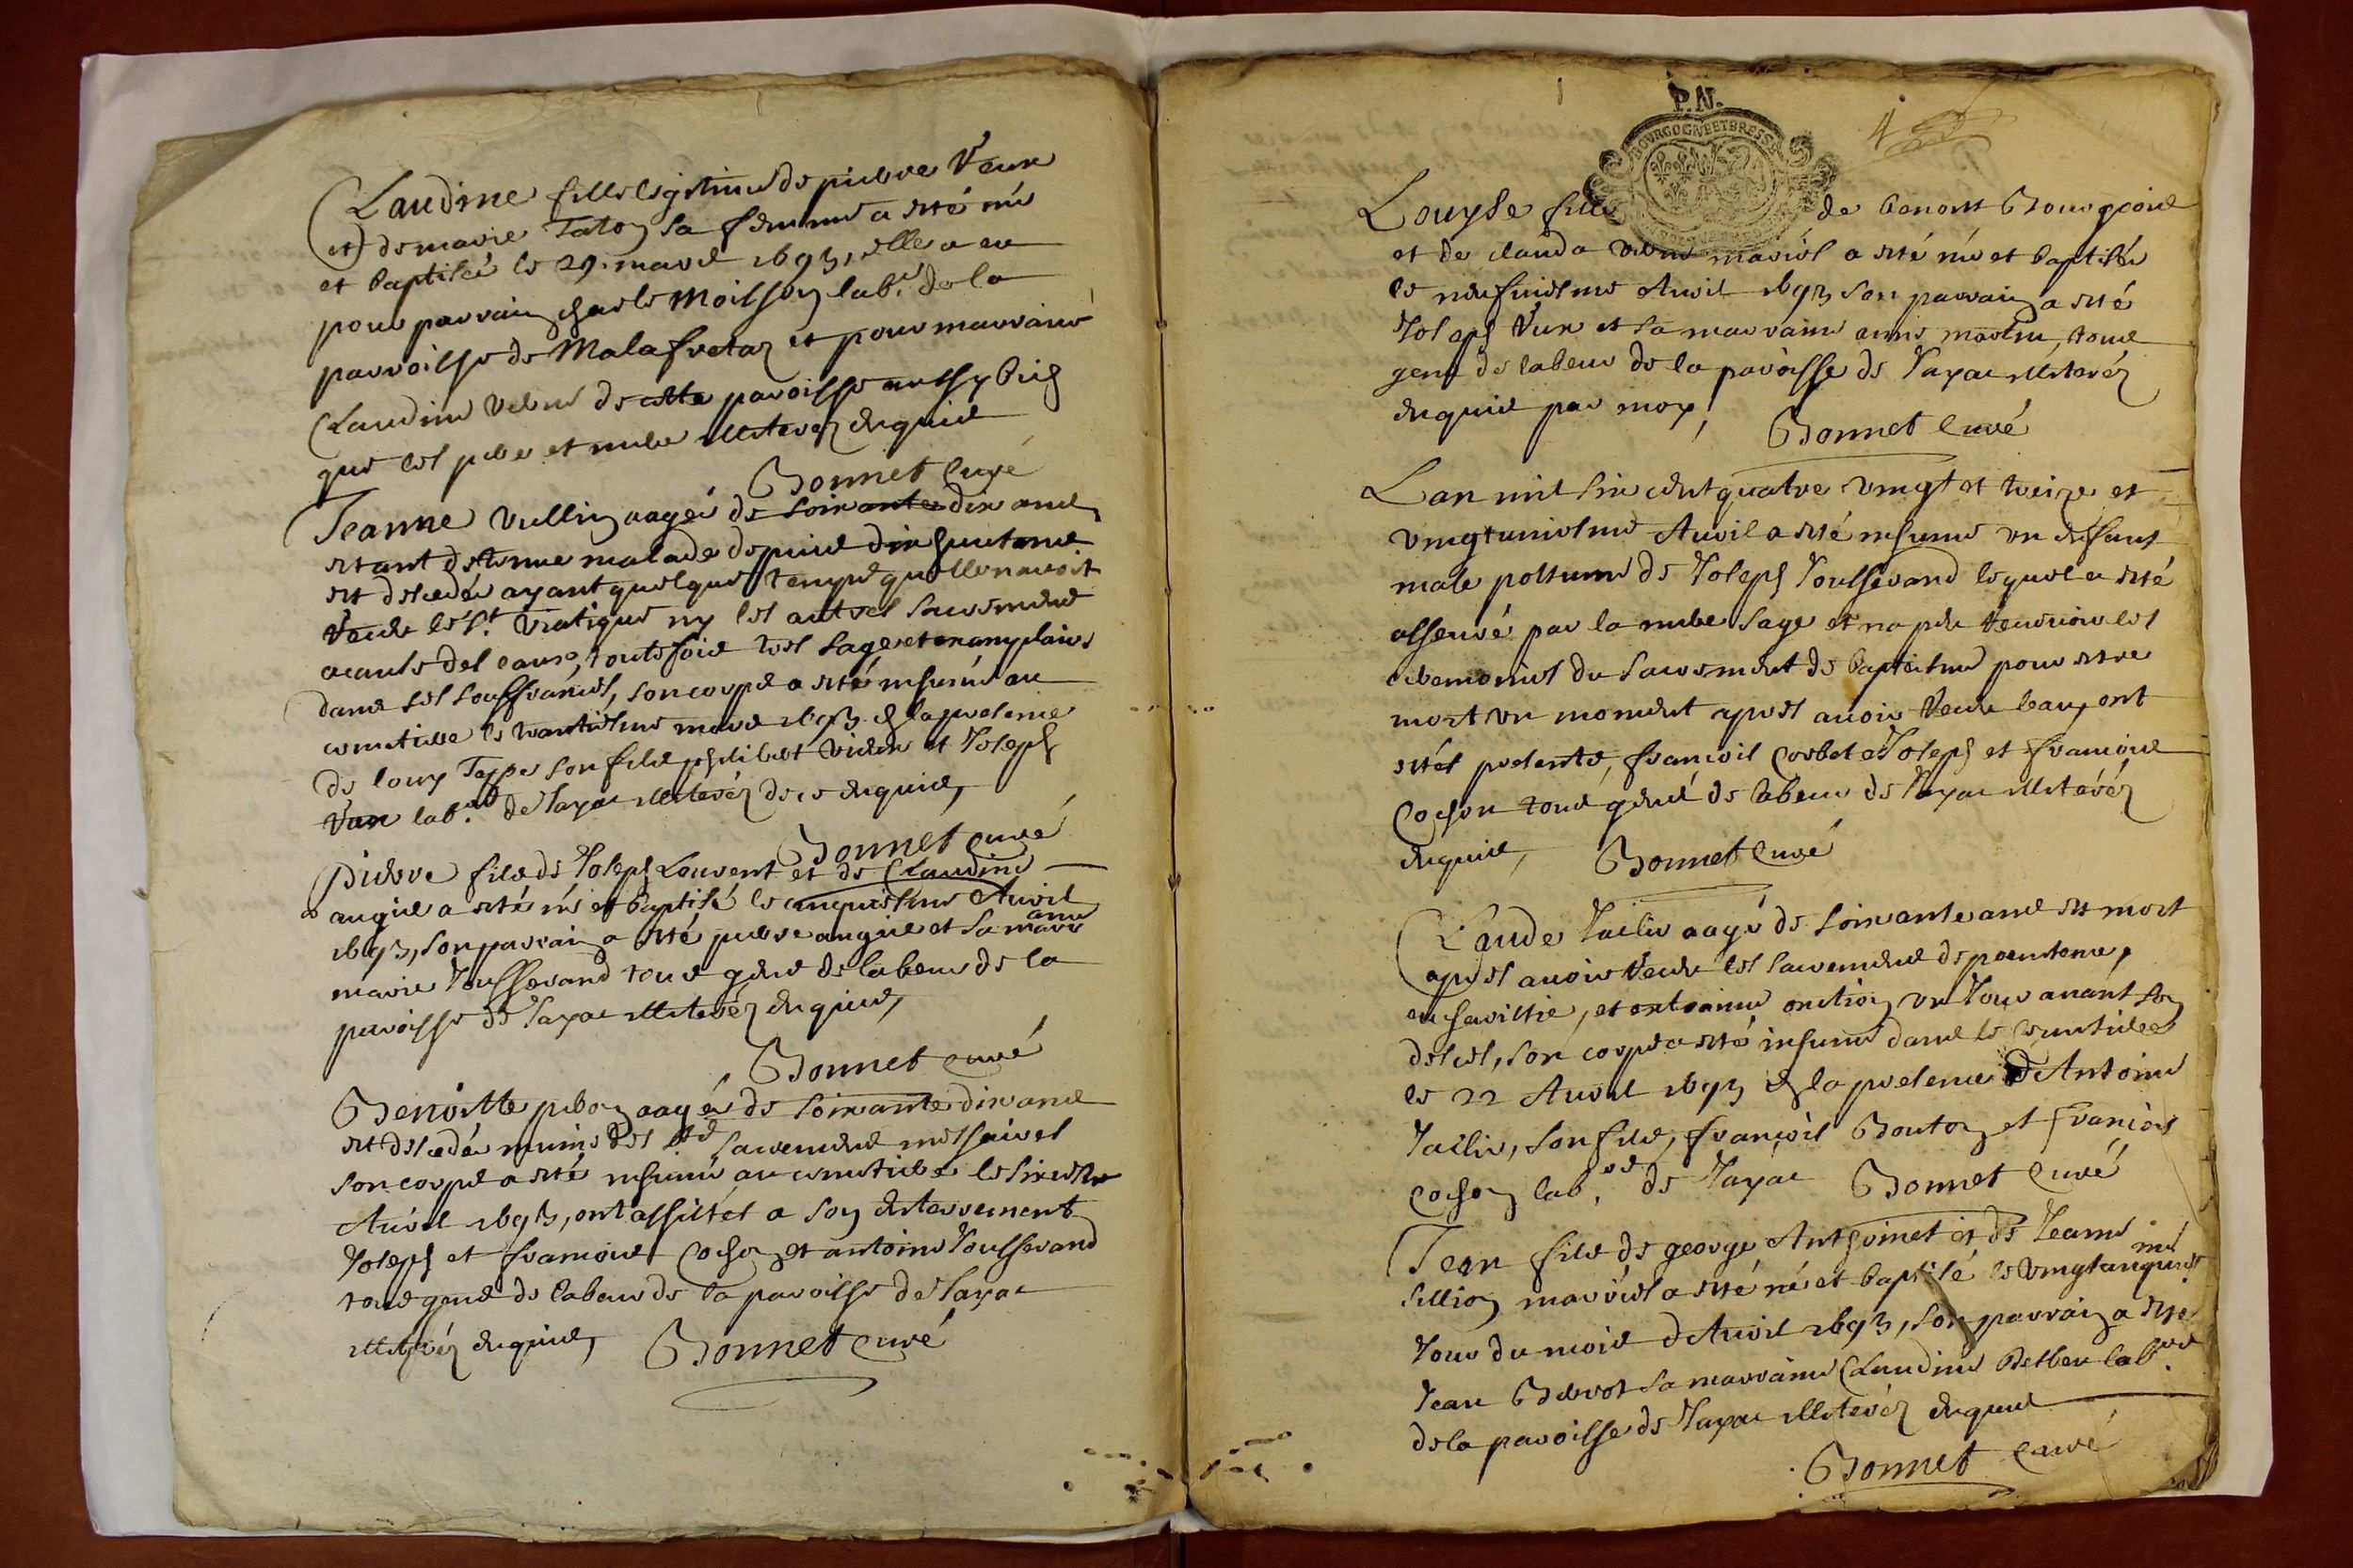 Claudine fille legitime de pierre Veux
et de marie Taton sa femme a esté née
et baptisée le 29. mars 1693, elle a eu
pour parrain charle Moisson lab.r de la
parroisse de Malafretaz et pour marraine
Claudine de cette paroisse aussy bien
que les pere et mere illiterez enquis
Bonnet Curé
Jeanne Vullin aagée de soixante dix ans
estant detenue malade depuis dix huit ans
est decedée ayant quelque temps quelle navoit
receu le S.t Viatique ny les autres sacremens
acause des eaux, toutefois tres sage et
dans ses souffrances, son corps a esté inhumé au
cimetiere le trantiesme mars 1693 en la presence
de Louy Teppe son fils philibert et Joseph
lab.rs de Jayac illiterez de ce enquis,
Bonnet curé
Pierre fils de Joseph Louvent et de Claudine
augie a esté né et baptisé le cinquiesme Avril
1693, son parrain a esté pierre augie et sa marraine
marie Jousserand tous gens de labeur de la
paroisse de Jayac illiterez enquis,
Bonnet curé
Benoitte aagée de soixante dix ans
est decedée munie des sts sacremens necessaires
son corps a esté inhumé au cimetiere le sixiesme
Avril 1693, ont assistés a son enterrement
Joseph et francois Cochon et antoine Jousserand
tous gens de labeur de la paroisse de Jayac
illiterez enquis, Bonnet curé
P.N.
BOURGOGNE ET BRESSE
4
Louyse fille de benoist Bourgeois
et de clauda mariés a esté née et baptisée
le neufuiesme Avril 1693 son parrain a esté
Joseph Veux et sa marraine anne martin, tous
gens de labeur de la paroisse de Jayac illiterez
enquis par moy, Bonnet Curé
Lan mil six cent quatre vingt et treize et
vingtuniesme Avril a esté inhumé un enfant
male postume de Joseph Jousserand lequel a esté
asseuré par la mere sage et na peu recevoir les
ceremonies du sacrement de baptesme pour estre
mort un moment apres avoir receu leau, ont
estés presents, francois Corbet Joseph et francois
Cochon tous gens de labeur de Jayac illiterez
enquis, Bonnet Curé
Claude aagé de soixante ans est mort
apres avoir receu les sacremens de penitence,
eucharistie, et extreme onction un Jour avant son
deces, son corps a esté inhumé dans le cimetiere
le 22 Avril 1693 en la presence d'Antoine
son fils, francois Bouton et francois
cochon lab.rs de Jayac Bonnet Curé
Jean fils de george Anthoinet et de Jeanne
Sillion mariés a esté né et baptisé le vingtcinquieme
Jour du mois d'Avril 1693, son parrain a esté
Jean sa marraine Claudine lab.rs
de la paroisse de Jayac illiterez enquis
Bonnet Curé